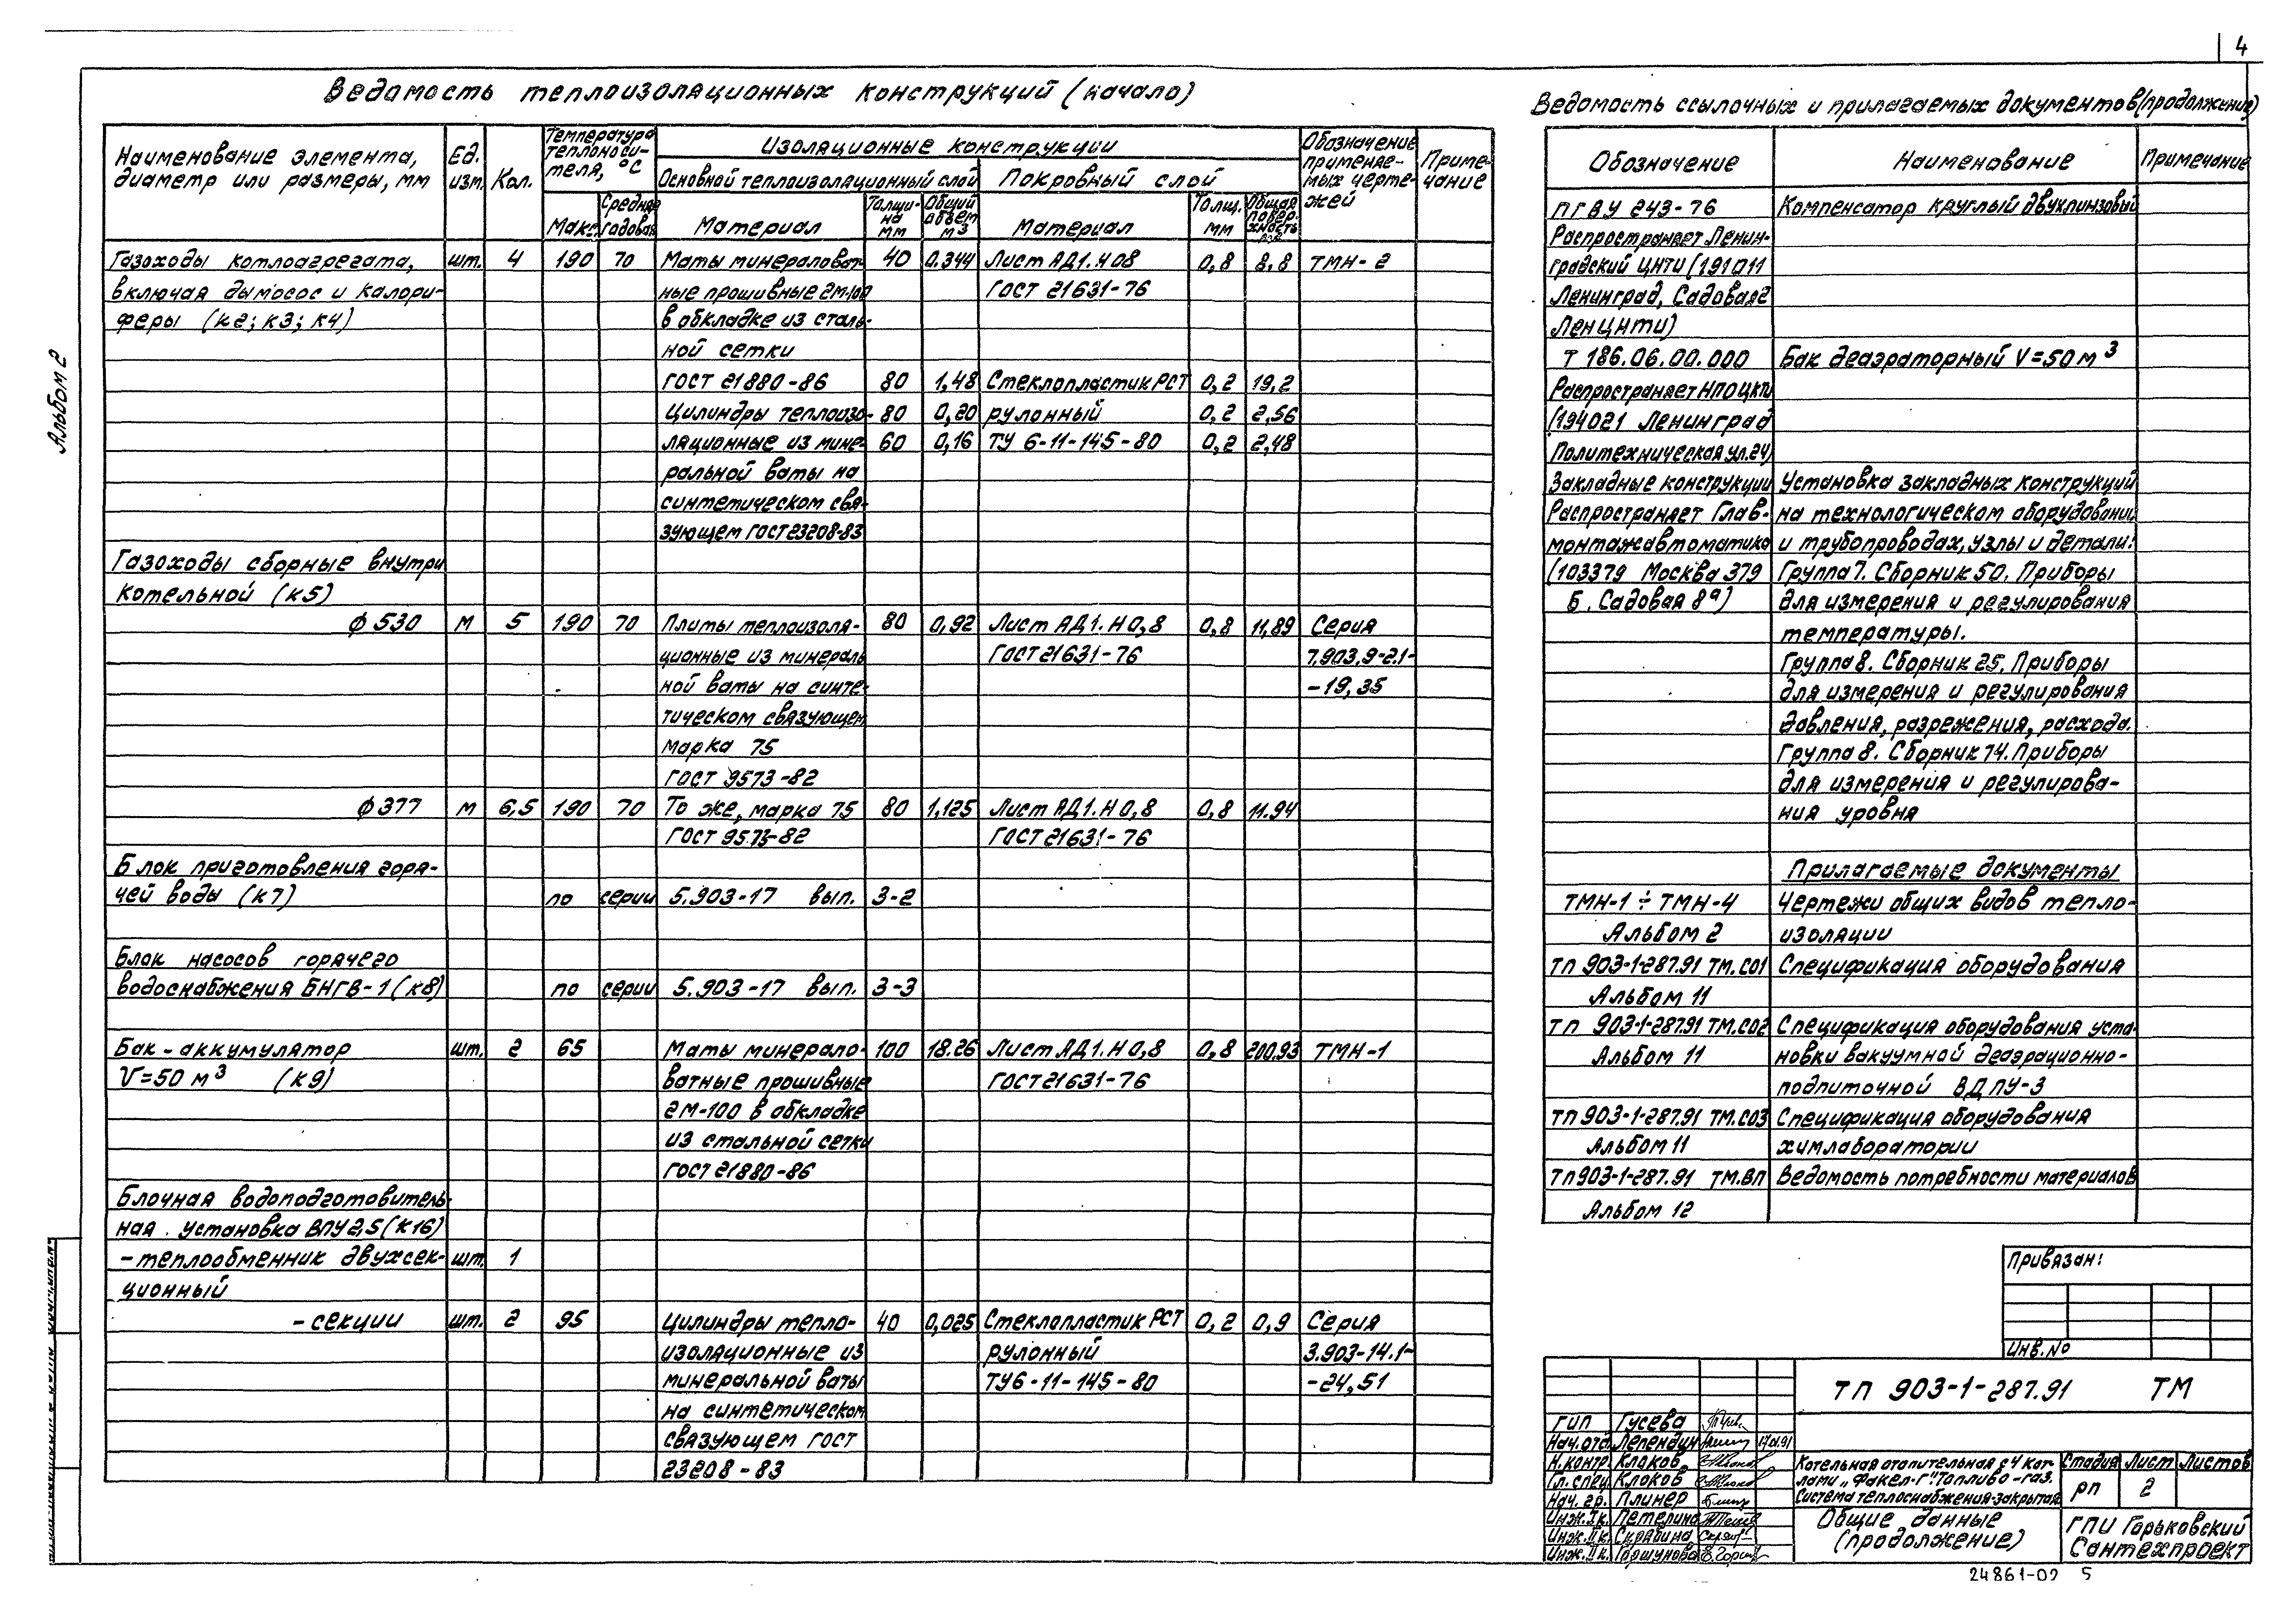 4
Ведомость теплоизоляционных конструкций (начало)
Наименование элемента, диаметр или размеры, мм
Ед. изм.
Кол.
Температура теплоносителя, °С
Макс.
Средняя годовая
Изоляционные конструкции
Основной теплоизоляционный слой
Покровный слой
Материал
Толщина мм
Общий объем м3
Материал
Толщ. мм
Общая поверхность
Обозначение применяемых чертежей
Примечание
Газоходы котлоагрегата, шт. 4 190 70 Маты минераловат- 40 0.344 Лист АД1.Н 08 0,8 8,8 ТМН-2
включая дымосос и калори- ные прошивные 2М-100 ГОСТ 21631-76
феры (к2; к3; к4) в обкладке из сталь-
ной сетки
ГОСТ 21880-86 80 1,48 Стеклопластик РСТ 0,2 19,2
Цилиндры теплоизо- 80 0,20 рулонный 0,2 2,56
ляционные из мине- 60 0,16 ТУ 6-11-145-80 0,2 2,48
ральной ваты на
синтетическом свя-
зующем ГОСТ 23208-83
Газоходы сборные внутри
котельной (к5)
ф 530 м 5 190 70 Плиты теплоизоля- 80 0,92 Лист АД1.Н 0,8 0,8 11,89 Серия
ционные из минераль ГОСТ 21631-76 7.903.9-2.1-
ной ваты на синте- -19,35
тическом связующем
марка 75
ГОСТ 9573-82
ф 377 м 6,5 190 70 То же, марка 75 80 1,125 Лист АД1.Н 0,8 0,8 11.94
ГОСТ 9573-82 ГОСТ 21631-76
Блок приготовления горя-
чей воды (к7) по серии 5.903-17 вып. 3-2
Блок насосов горячего
водоснабжения БНГВ-1 (к8) по серии 5.903-17 вып. 3-3
Бак-аккумулятор шт. 2 65 Маты минерало- 100 18.26 Лист АД1.Н 0,8 0,8 200.93 ТМН-1
V=50 м3 (к9) ватные прошивные ГОСТ 21631-76
2М-100 в обкладке
из стальной сетки
ГОСТ 21880-86
Блочная водоподготовитель-
ная установка ВПУ 2,5 (к16)
- теплообменник двухсек- шт. 1
ционный
- секции шт. 2 95 Цилиндры тепло- 40 0,025 Стеклопластик РСТ 0,2 0,9 Серия
изоляционные из рулонный 3.903-14.1-
минеральной ваты ТУ6-11-145-80 -24,51
на синтетическом
связующем ГОСТ
23208-83
Альбом 2
Ведомость ссылочных и прилагаемых документов (продолжение)
Обозначение Наименование Примечание
ПГВУ 243-76 Компенсатор круглый двухлинзовый
Распространяет Ленин-
градский ЦНТИ (191011
Ленинград, Садовая 2
ЛенЦНТИ)
Т 186.06.00.000 Бак деаэраторный V=50 м3
Распространяет НПО ЦКТИ
(194021 Ленинград
Политехническая ул. 24)
Закладные конструкции Установка закладных конструкций
Распространяет Глав- на технологическом оборудовании
монтажавтоматика и трубопроводах, узлы и детали:
(103379 Москва 379 Группа 7. Сборник 50. Приборы
Б. Садовая 8а) для измерения и регулирования
температуры.
Группа 8. Сборник 25. Приборы
для измерения и регулирования
давления, разрежения, расхода.
Группа 8. Сборник 74. Приборы
для измерения и регулирова-
ния уровня
Прилагаемые документы
ТМН-1 ÷ ТМН-4 Чертежи общих видов тепло-
Альбом 2 изоляции
ТП 903-1-287.91 ТМ.СО1 Спецификация оборудования
Альбом 11
ТП 903-1-287.91 ТМ.СО2 Спецификация оборудования уста-
Альбом 11 новки вакуумной деаэрационно-
подпиточной ВДПУ-3
ТП 903-1-287.91 ТМ.СО3 Спецификация оборудования
Альбом 11 химлаборатории
ТП 903-1-287.91 ТМ.ВП Ведомость потребности материалов
Альбом 12
Привязан:
Инв. No
ТП 903-1-287.91 ТМ
ГИП Гусева
Нач. отд. Лепендин 17.01.91
Н. контр. Клоков
Гл. спец. Клоков
Нач. гр. Плинер
Инж. I к. Петелина
Инж. II к. Скрябина
Инж. II к. Горшунова
Котельная отопительная с 4 кот-
лами „Факел-Г" Топливо-газ.
Система теплоснабжения-закрытая
Стадия Лист Листов
РП 2
Общие данные
(продолжение)
ГПИ Горьковский
Сантехпроект
24861-02 5